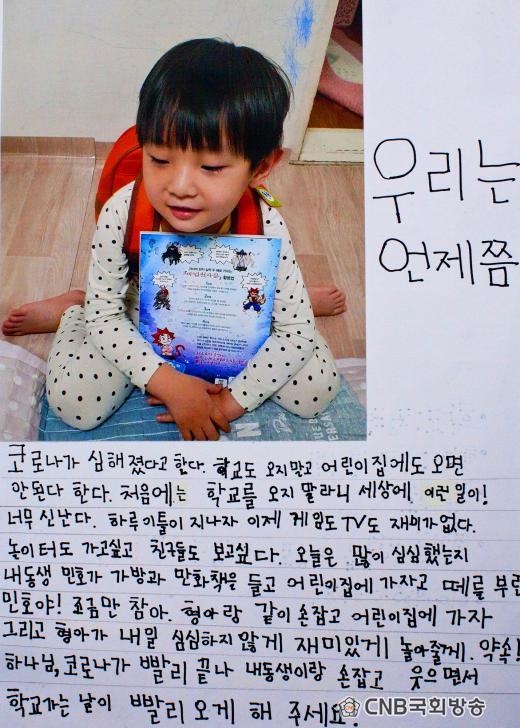 우리는
언제쯤
코로나가 심해졌다고 한다. 학교도 오지말고 어린이집에도 오면
안된다 한다. 처음에는 학교를 오지 말라니 세상에 이런 일이!
너무 신난다. 하루이틀이 지나자 이제 게임도 TV도 재미가 없다.
놀이터도 가고싶고 친구들도 보고싶다. 오늘은 많이 심심했는지
내동생 민호가 가방과 만화책을 들고 어린이집에 가자고 떼를 부린
민호야! 조금만 참아. 형아랑 같이 손잡고 어린이집에 가자
그리고 형아가 내일 심심하지 않게 재미있게 놀아줄게. 약속!
하나님, 코로나가 빨리 끝나 내동생이랑 손잡고 웃으면서
학교가는 날이 빨리 오게 해 주세요.
CNB국회방송